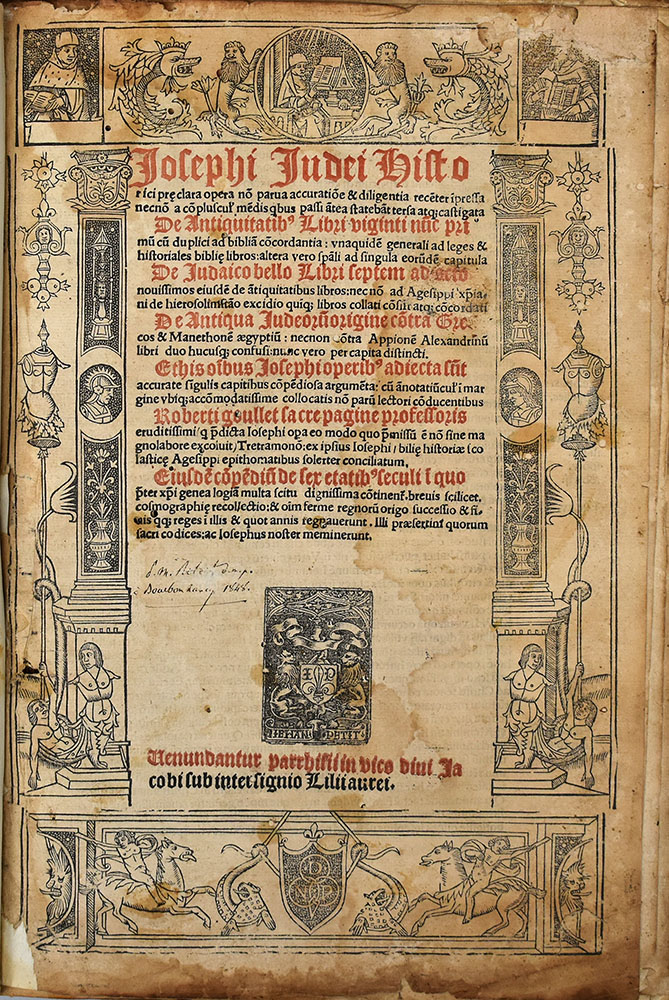 Josephi Judei Histo
rici prę clara opera nō parua accuratiōe & diligentia recēter īpressa
necnō a cōplusculꝭ mēdis qbus passi ātea statebāt tersa atqꝫ castigata
De Antiquitatibꝰ Libri viginti nūc pri
mū cū duplici ad bibliā cōcordantia : vnaquidē generali ad leges &
historiales biblię libros: altera vero spāli ad singula eorūdē capitula
De Judaico bello Libri septem ad
nouissimos eiusdē de ātiquitatibus libros: nec nō ad Agesippi xp̄ia/
ni de hierosolimitāo excidio quiqꝫ libros collati cōsūt atqꝫ cōcordati
De Antiqua Judeorū origine cōtra Gre
cos & Manethonē ægyptiū : necnon cōtra Appionē Alexandrinū
libri duo hucusqꝫ confusi: nunc vero per capita distincti.
Ethis oībus Josephi operibꝰ adiecta sūt
accurate sīgulis capitibus cōpēdiosa argumēta: cū ānotatiūculꝭ ī mar
gine vbiqꝫ accōmodatissime collocatis nō parū lectori cōducentibus
Roberti goullet sacre pagine professoris
eruditissimi/ q p̄dicta Iosephi opa eo modo quo p̄missū ē nō sine ma
gno labore excoluit/ Tetramonō: ex ipsius Iosephi/ biblię historiæ sco
lasticę Agesippi epithomatibus solerter conciliatum.
Eiusdē cōpēdiū de sex etatibꝰ seculi ī quo
p̄ter xp̄i genea logiā multa scitu dignissima cōtinent̄. brevis scilicet
cosmographię recollectio: & oīm ferme regnorū origo successio & fi/
nis qqꝫ reges ī illis & quot annis regnauerunt. Illi præsertint quorum
sacri codices: ac Iosephus noster meminerunt.
1848.
I P
IEHAN PETIT
Uenundantur parrhisii in vico diui Ja
cobi sub intersignio Lilii aurei.